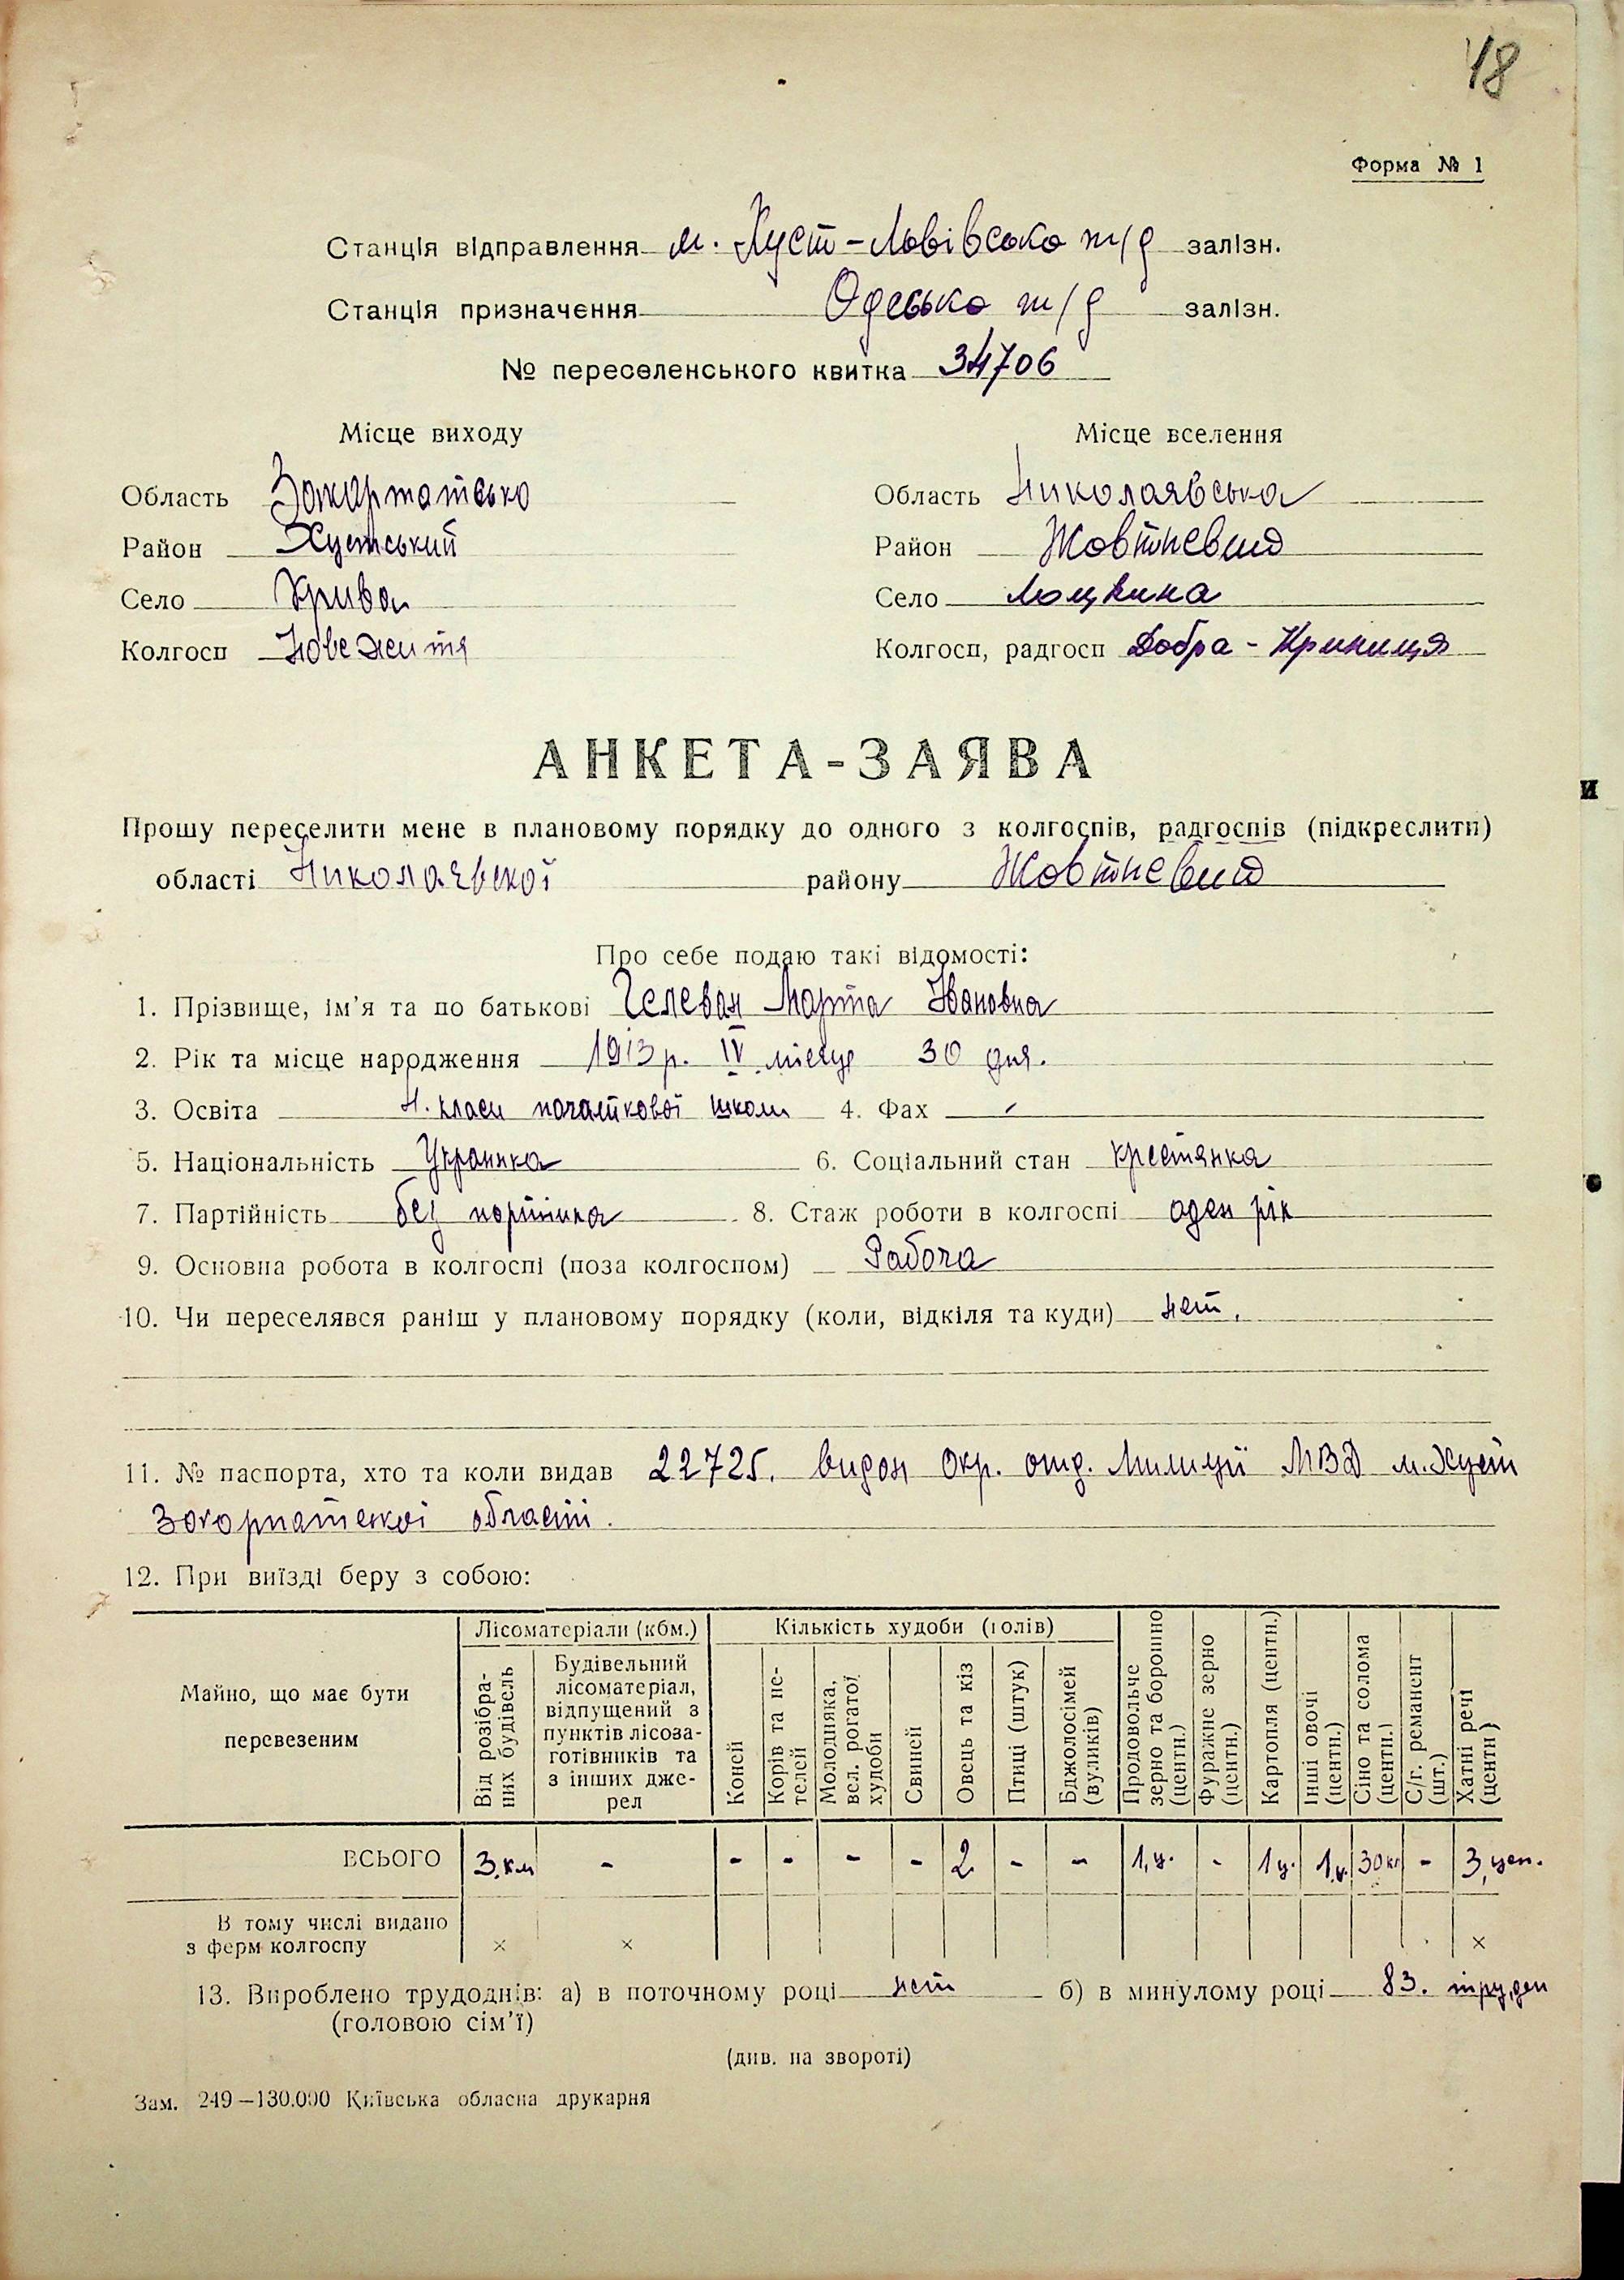 48
Форма № 1
Станція відправлення м. Хуст-Львівсько ж/д залізн.
Станція призначення Одесько ж/д залізн.
№ переселенського квитка 34706
Місце виходу Місце вселення
Область Закарпатсько Область Николаявська
Район Хустський Район Жовтневий
Село Крива Село Лоцкина
Колгосп Нове життя Колгосп, радгосп Добра-Криниця
АНКЕТА-ЗАЯВА
Прошу переселити мене в плановому порядку до одного з колгоспів, радгоспів (підкреслити)
області Николаєвскої району Жовтневий
Про себе подаю такі відомості:
1. Прізвище, ім'я та по батькові Гелеван Марта Ивановна
2. Рік та місце народження 1913 р. IV місяця 30 дня.
3. Освіта 4. класи початкової школи 4. Фах -
5. Національність Украинка 6. Соціальний стан крестянка
7. Партійність без партійна 8. Стаж роботи в колгоспі оден рік
9. Основна робота в колгоспі (поза колгоспом) Рабоча
10. Чи переселявся раніш у плановому порядку (коли, відкіля та куди) нет.
11. № паспорта, хто та коли видав 22725. видан Окр. отд. Милиції МВД м. Хуст
Закарпатскої області.
12. При виїзді беру з собою:
Майно, що має бути перевезеним
Лісоматеріали (кбм.)
Кількість худоби (голів)
Від розібраних будівель
Будівельний лісоматеріал, відпущений з пунктів лісозаготівників та з інших джерел
Коней
Корів та нетелей
Молодняка, вел. рогатої худоби
Свиней
Овець та кіз
Птиці (штук)
Бджолосімей (вуликів)
Продовольче зерно та борошно (центн.)
Фуражне зерно (центн.)
Картопля (центн.)
Інші овочі (центн.)
Сіно та солома (центн.)
С/г. реманент (шт.)
Хатні речі (центн)
ВСЬОГО 3. км - - - - - 2 - - 1,ц. - 1ц. 1ц. 30 кг - 3 цен.
В тому числі видано
з ферм колгоспу × × ×
13. Вироблено трудоднів: а) в поточному році нет б) в минулому році 83. труден
(головою сім'ї)
(див. на звороті)
Зам. 249—130.000 Київська обласна друкарня
и